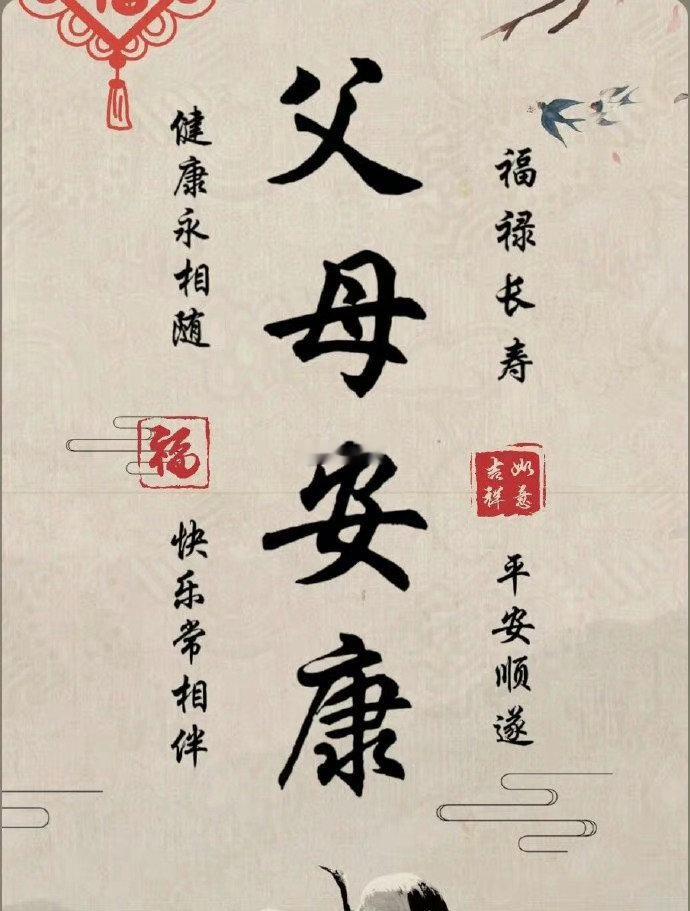 福
父母安康
福禄长寿
如意
吉祥
平安顺遂
健康永相随
福
快乐常相伴